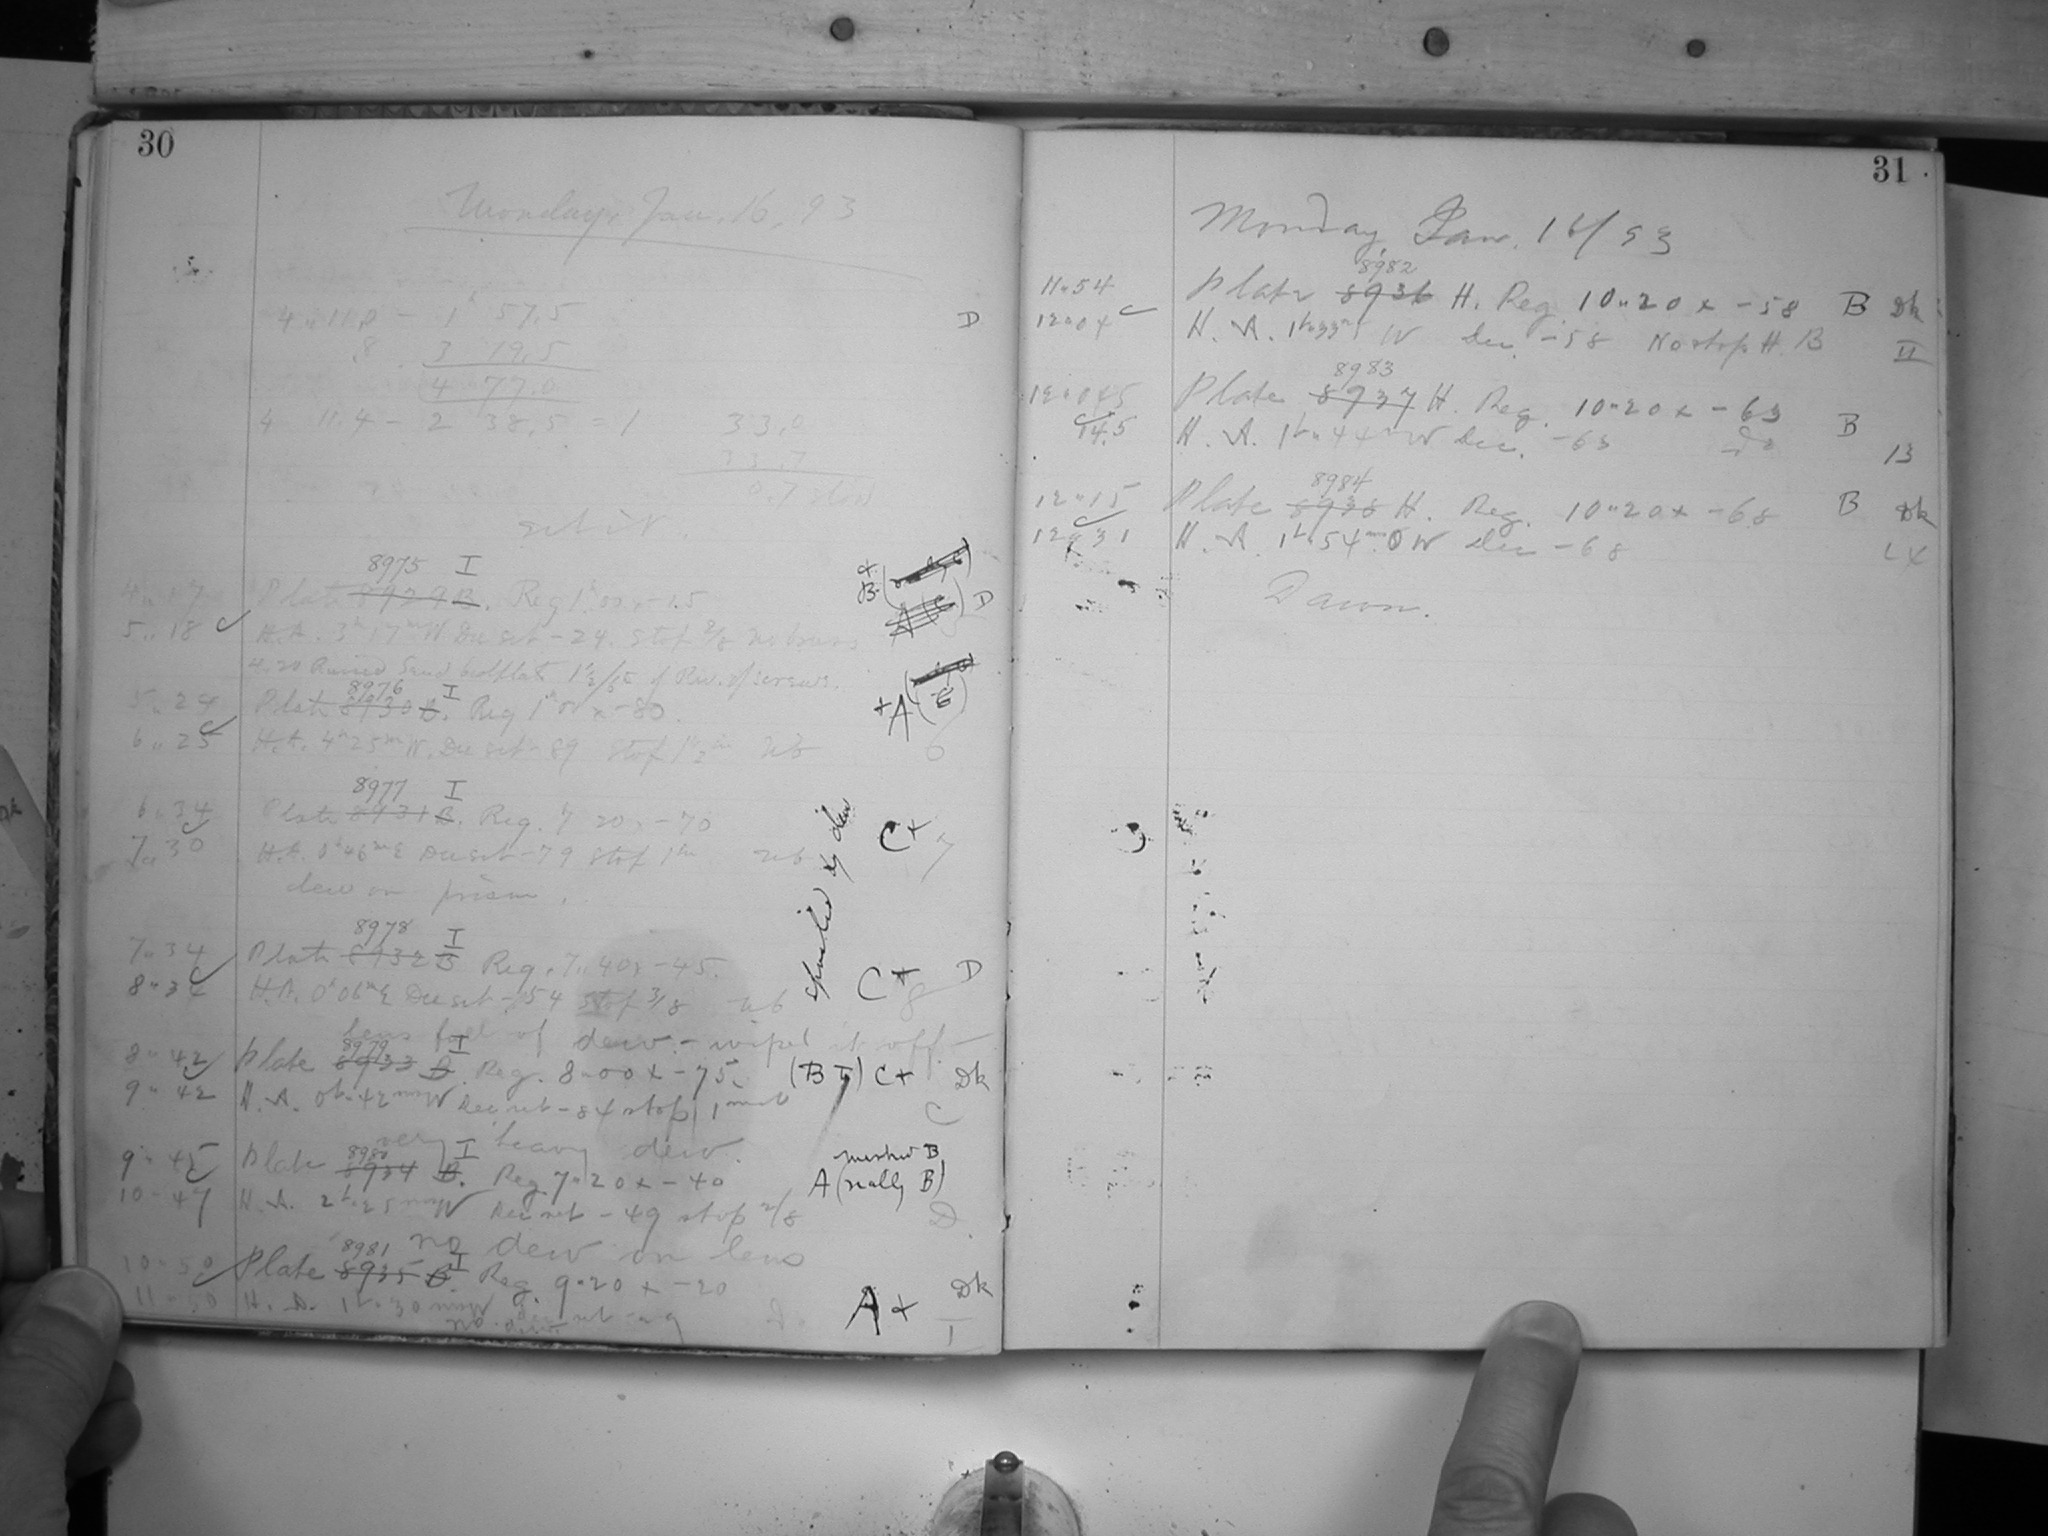 30
Monday, Jan. 16, 93
4 11.8 - 1h 57.5 D
8 3 19.5
4 77.0
4 11.4 - 2 38.5 = 1 33.0
33.7
0.7 slow
set it.
8975 I
4 17 Plate 8929 B. Reg 1h 00 x -15 B D
5 18 H.A. 3h 17m W Dec set - 24. Stop 2/8
8976 I
5 24 Plate 8930 B. Reg 1h 00 x -80. +A
6 25 H.A. 4h 25m W. Dec set - 89 Stop 6
8977 I
6 34 Plate 8931 B. Reg. 7 20 x -70 C+
7 30 H.A. 0h 46m E Dec set - 79 Stop 1 in 7
dew on prism.
spoiled by dew
8978 I
7 34 Plate 8932 B Reg. 7 40 x -45. C+ D
8 34 H.A. 0h 06m E Dec set - 54 Stop 3/8 8
Lens full of dew. - wiped it off -
8979 I
8 42 Plate 8933 B. Reg. 8 00 x -75. (B I) C+ Dk
9 42 H.A. 0h 42m W Dec set - 84 stop 1 C
very heavy dew.
8980 I
9 45 Plate 8934 B. Reg 7 20 x -40 A (really B)
10 47 H.A. 2h 25m W Dec set - 49 stop 2/8 D
no dew on lens
8981 I
10 50 Plate 8935 B Reg. 9 20 x -20 A+ Dk
11 50 H.A. 1h 30m W Dec set - 29 Do I
no dew.
31
Monday Jan. 16/93
8982
11 54 Plate 8936 H. Reg. 10 20 x -58 B Dk
12 04 H.A. 1h 33m W Dec. -58 No stop H. B II
8983
12 04.5 Plate 8937 H. Reg. 10 20 x -63 B
14.5 H.A. 1h 44 W Dec. -63 Do 13
8984
12 15 Plate 8938 H. Reg. 10 20 x -68 B Dk
12 31 H.A. 1h 54m.0 W Dec -68
Dawn.